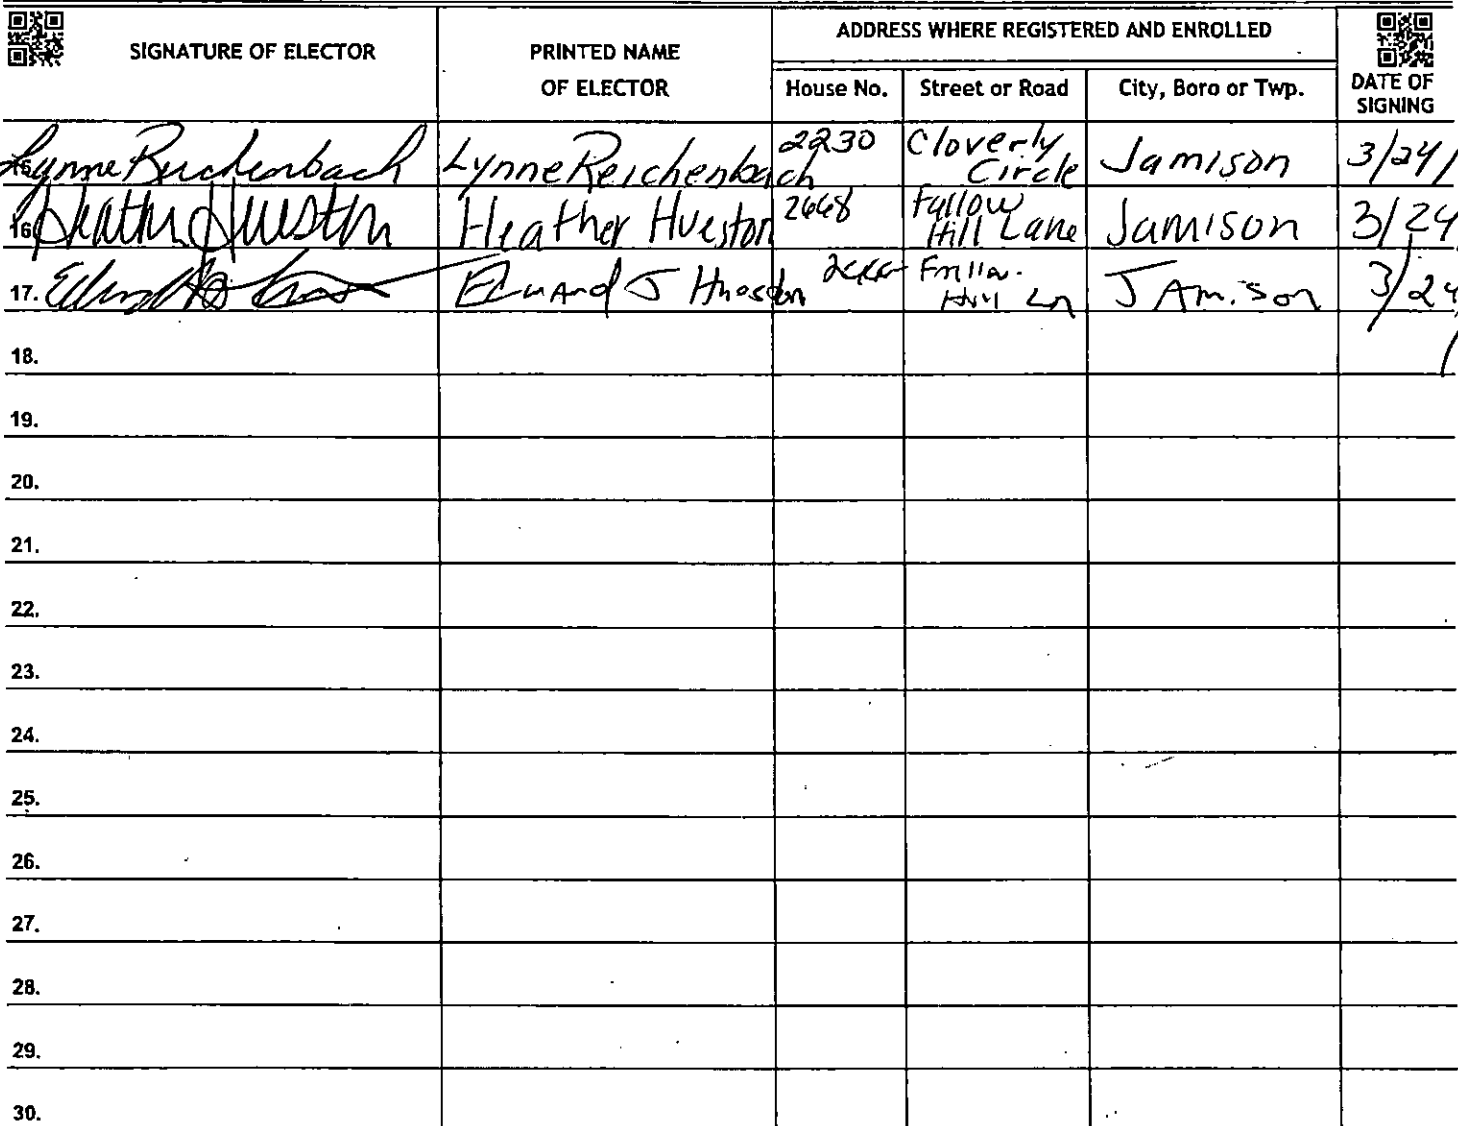 SIGNATURE OF ELECTOR
PRINTED NAME
OF ELECTOR
ADDRESS WHERE REGISTERED AND ENROLLED
House No.
Street or Road
City, Boro or Twp.
DATE OF
SIGNING
15. Lynne Reichenbach Lynne Reichenbach 2230 Cloverly Circle Jamison 3/24/
16. Heather Hueston Heather Hueston 2668 Fallow Hill Lane Jamison 3/24/
17. J Hueston Hill Ln JAmison 3/24/
18.
19.
20.
21.
22.
23.
24.
25.
26.
27.
28.
29.
30.